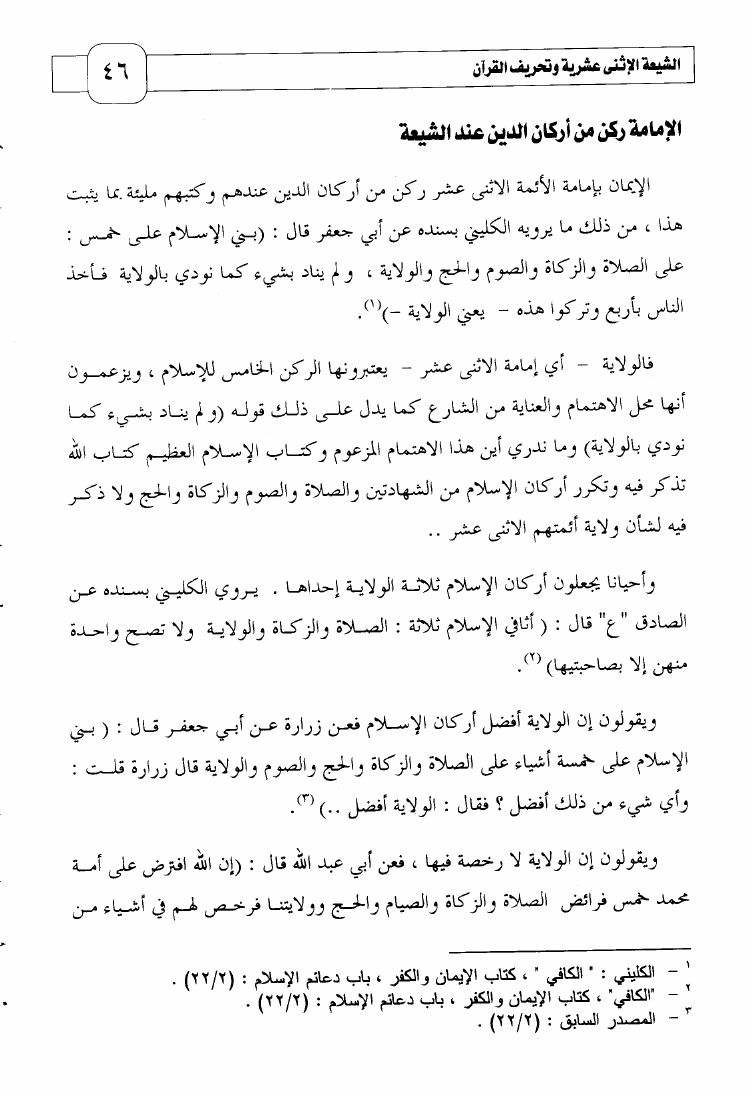 الشيعة الإثنى عشرية وتحريف القرآن
٤٦
الإمامة ركن من أركان الدين عند الشيعة
الإيمان بإمامة الأئمة الاثنى عشر ركن من أركان الدين عندهم وكتبهم مليئة بما يثبت
هذا ، من ذلك ما يرويه الكليني بسنده عن أبي جعفر قال : (بـني الإسـلام علـى خمـس :
على الصلاة والزكاة والصوم والحج والولاية ، ولم يناد بشيء كما نودي بالولاية فـأخذ
الناس بأربع وتركوا هذه – يعني الولاية –)(١).
فالولاية – أي إمامة الاثنى عشر – يعتبرونها الركن الخامس للإسلام ، ويزعمـون
أنها محل الاهتمام والعناية من الشارع كما يدل علـى ذلـك قولـه (ولم ينـاد بشـيء كمـا
نودي بالولاية) وما ندري أين هذا الاهتمام المزعوم وكتـاب الإسـلام العظيـم كتـاب الله
تذكر فيه وتكرر أركان الإسلام من الشهادتين والصلاة والصوم والزكاة والحج ولا ذكـر
فيه لشأن ولاية أئمتهم الاثنى عشر ..
وأحيانا يجعلون أركان الإسلام ثلاثـة الولايـة إحداهـا . يـروي الكليـني بسـنده عـن
الصادق "ع" قال : ( أثافي الإسلام ثلاثة : الصـلاة والزكـاة والولايـة ولا تصـح واحـدة
منهن إلا بصاحبتيها) (٢).
ويقولون إن الولاية أفضل أركان الإسـلام فعـن زرارة عـن أبـي جعفـر قـال : ( بـني
الإسلام على خمسة أشياء على الصلاة والزكاة والحج والصوم والولاية قال زرارة قلـت :
وأي شيء من ذلك أفضل ؟ فقال : الولاية أفضل ..) (٣).
ويقولون إن الولاية لا رخصة فيها ، فعن أبي عبد الله قال : (إن الله افترض على أمـة
محمد خمس فرائض الصلاة والزكاة والصيام والحـج وولايتنـا فرخـص لهـم في أشياء مـن
١ – الكليني : " الكافي " ، كتاب الإيمان والكفر ، باب دعائم الإسلام : (٢٢/٢) .
٢ – "الكافي" ، كتاب الإيمان والكفر ، باب دعائم الإسلام : (٢٢/٢) .
٣ – المصدر السابق : (٢٢/٢) .